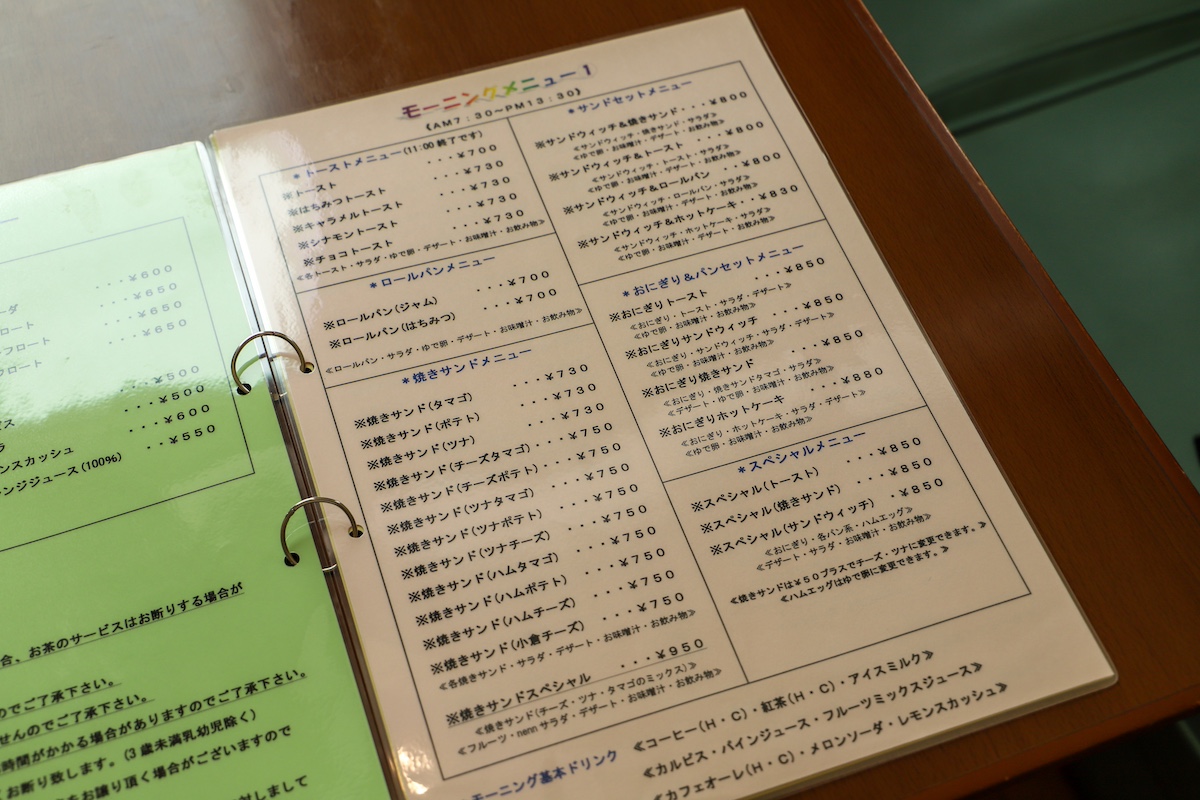 ーダ
ロート
フロート
ロート
¥600
・¥650
¥650
¥650
¥500
・・・¥500
・・・¥600
・・¥550
ンスカッシュ
ンジジュース(100%)
合、お茶のサービスはお断りする場合が
のでご了承下さい。
せんのでご了承下さい。
時間がかかる場合がありますのでご了承下さい。
お断り致します。(3歳未満乳幼児除く)
をお譲り頂く場合がございますので
対しまして
モーニングメニュー1
《AM7:30~PM13:30》
*トーストメニュー(11:00終了です)
※トースト ・・・¥700
※はちみつトースト ・・・¥730
※キャラメルトースト ・・・¥730
※シナモントースト ・・・¥730
※チョコトースト ・・・¥730
≪各トースト・サラダ・ゆで卵・デザート・お味噌汁・お飲み物≫
*ロールパンメニュー
※ロールパン(ジャム) ・・・¥700
※ロールパン(はちみつ) ・・・¥700
≪ロールパン・サラダ・ゆで卵・デザート・お味噌汁・お飲み物≫
*焼きサンドメニュー
※焼きサンド(タマゴ) ・・・¥730
※焼きサンド(ポテト) ・・・¥730
※焼きサンド(ツナ) ・・・¥730
※焼きサンド(チーズタマゴ)・・・¥750
※焼きサンド(チーズポテト)・・・¥750
※焼きサンド(ツナタマゴ) ・・・¥750
※焼きサンド(ツナポテト) ・・・¥750
※焼きサンド(ツナチーズ) ・・・¥750
※焼きサンド(ハムタマゴ) ・・・¥750
※焼きサンド(ハムポテト) ・・・¥750
※焼きサンド(ハムチーズ) ・・・¥750
※焼きサンド(小倉チーズ) ・・・¥750
≪各焼きサンド・サラダ・デザート・お味噌汁・お飲み物≫
※焼きサンドスペシャル ・・・¥950
≪焼きサンド(チーズ・ツナ・タマゴのミックス)≫
≪フルーツ・nennサラダ・デザート・お味噌汁・お飲み物≫
*サンドセットメニュー
※サンドウィッチ&焼きサンド・・・¥800
≪サンドウィッチ・焼きサンド・サラダ≫
≪ゆで卵・お味噌汁・デザート・お飲み物≫
※サンドウィッチ&トースト ・・・¥800
≪サンドウィッチ・トースト・サラダ≫
≪ゆで卵・お味噌汁・デザート・お飲み物≫
※サンドウィッチ&ロールパン ・・・¥800
≪サンドウィッチ・ロールパン・サラダ≫
≪ゆで卵・お味噌汁・デザート・お飲み物≫
※サンドウィッチ&ホットケーキ・・・¥830
≪サンドウィッチ・ホットケーキ・サラダ≫
≪ゆで卵・お味噌汁・デザート・お飲み物≫
*おにぎり&パンセットメニュー
※おにぎりトースト ・・・¥850
≪おにぎり・トースト・サラダ・デザート≫
≪ゆで卵・お味噌汁・お飲み物≫
※おにぎりサンドウィッチ ・・・¥850
≪おにぎり・サンドウィッチ・サラダ・デザート≫
≪ゆで卵・お味噌汁・お飲み物≫
※おにぎり焼きサンド ・・・¥850
≪おにぎり・焼きサンドタマゴ・サラダ≫
≪デザート・ゆで卵・お味噌汁・お飲み物≫
※おにぎりホットケーキ ・・・¥880
≪おにぎり・ホットケーキ・サラダ・デザート≫
≪ゆで卵・お味噌汁・お飲み物≫
*スペシャルメニュー
※スペシャル(トースト) ・・・¥850
※スペシャル(焼きサンド) ・・・¥850
※スペシャル(サンドウィッチ) ・¥850
≪おにぎり・各パン系・ハムエッグ≫
≪デザート・サラダ・お味噌汁・お飲み物≫
≪焼きサンドは¥50プラスでチーズ・ツナに変更できます。≫
≪ハムエッグはゆで卵に変更できます。≫
モーニング基本ドリンク
≪コーヒー(H・C)・紅茶(H・C)・アイスミルク≫
≪カルピス・パインジュース・フルーツミックスジュース≫
≪カフェオーレ(H・C)・メロンソーダ・レモンスカッシュ≫